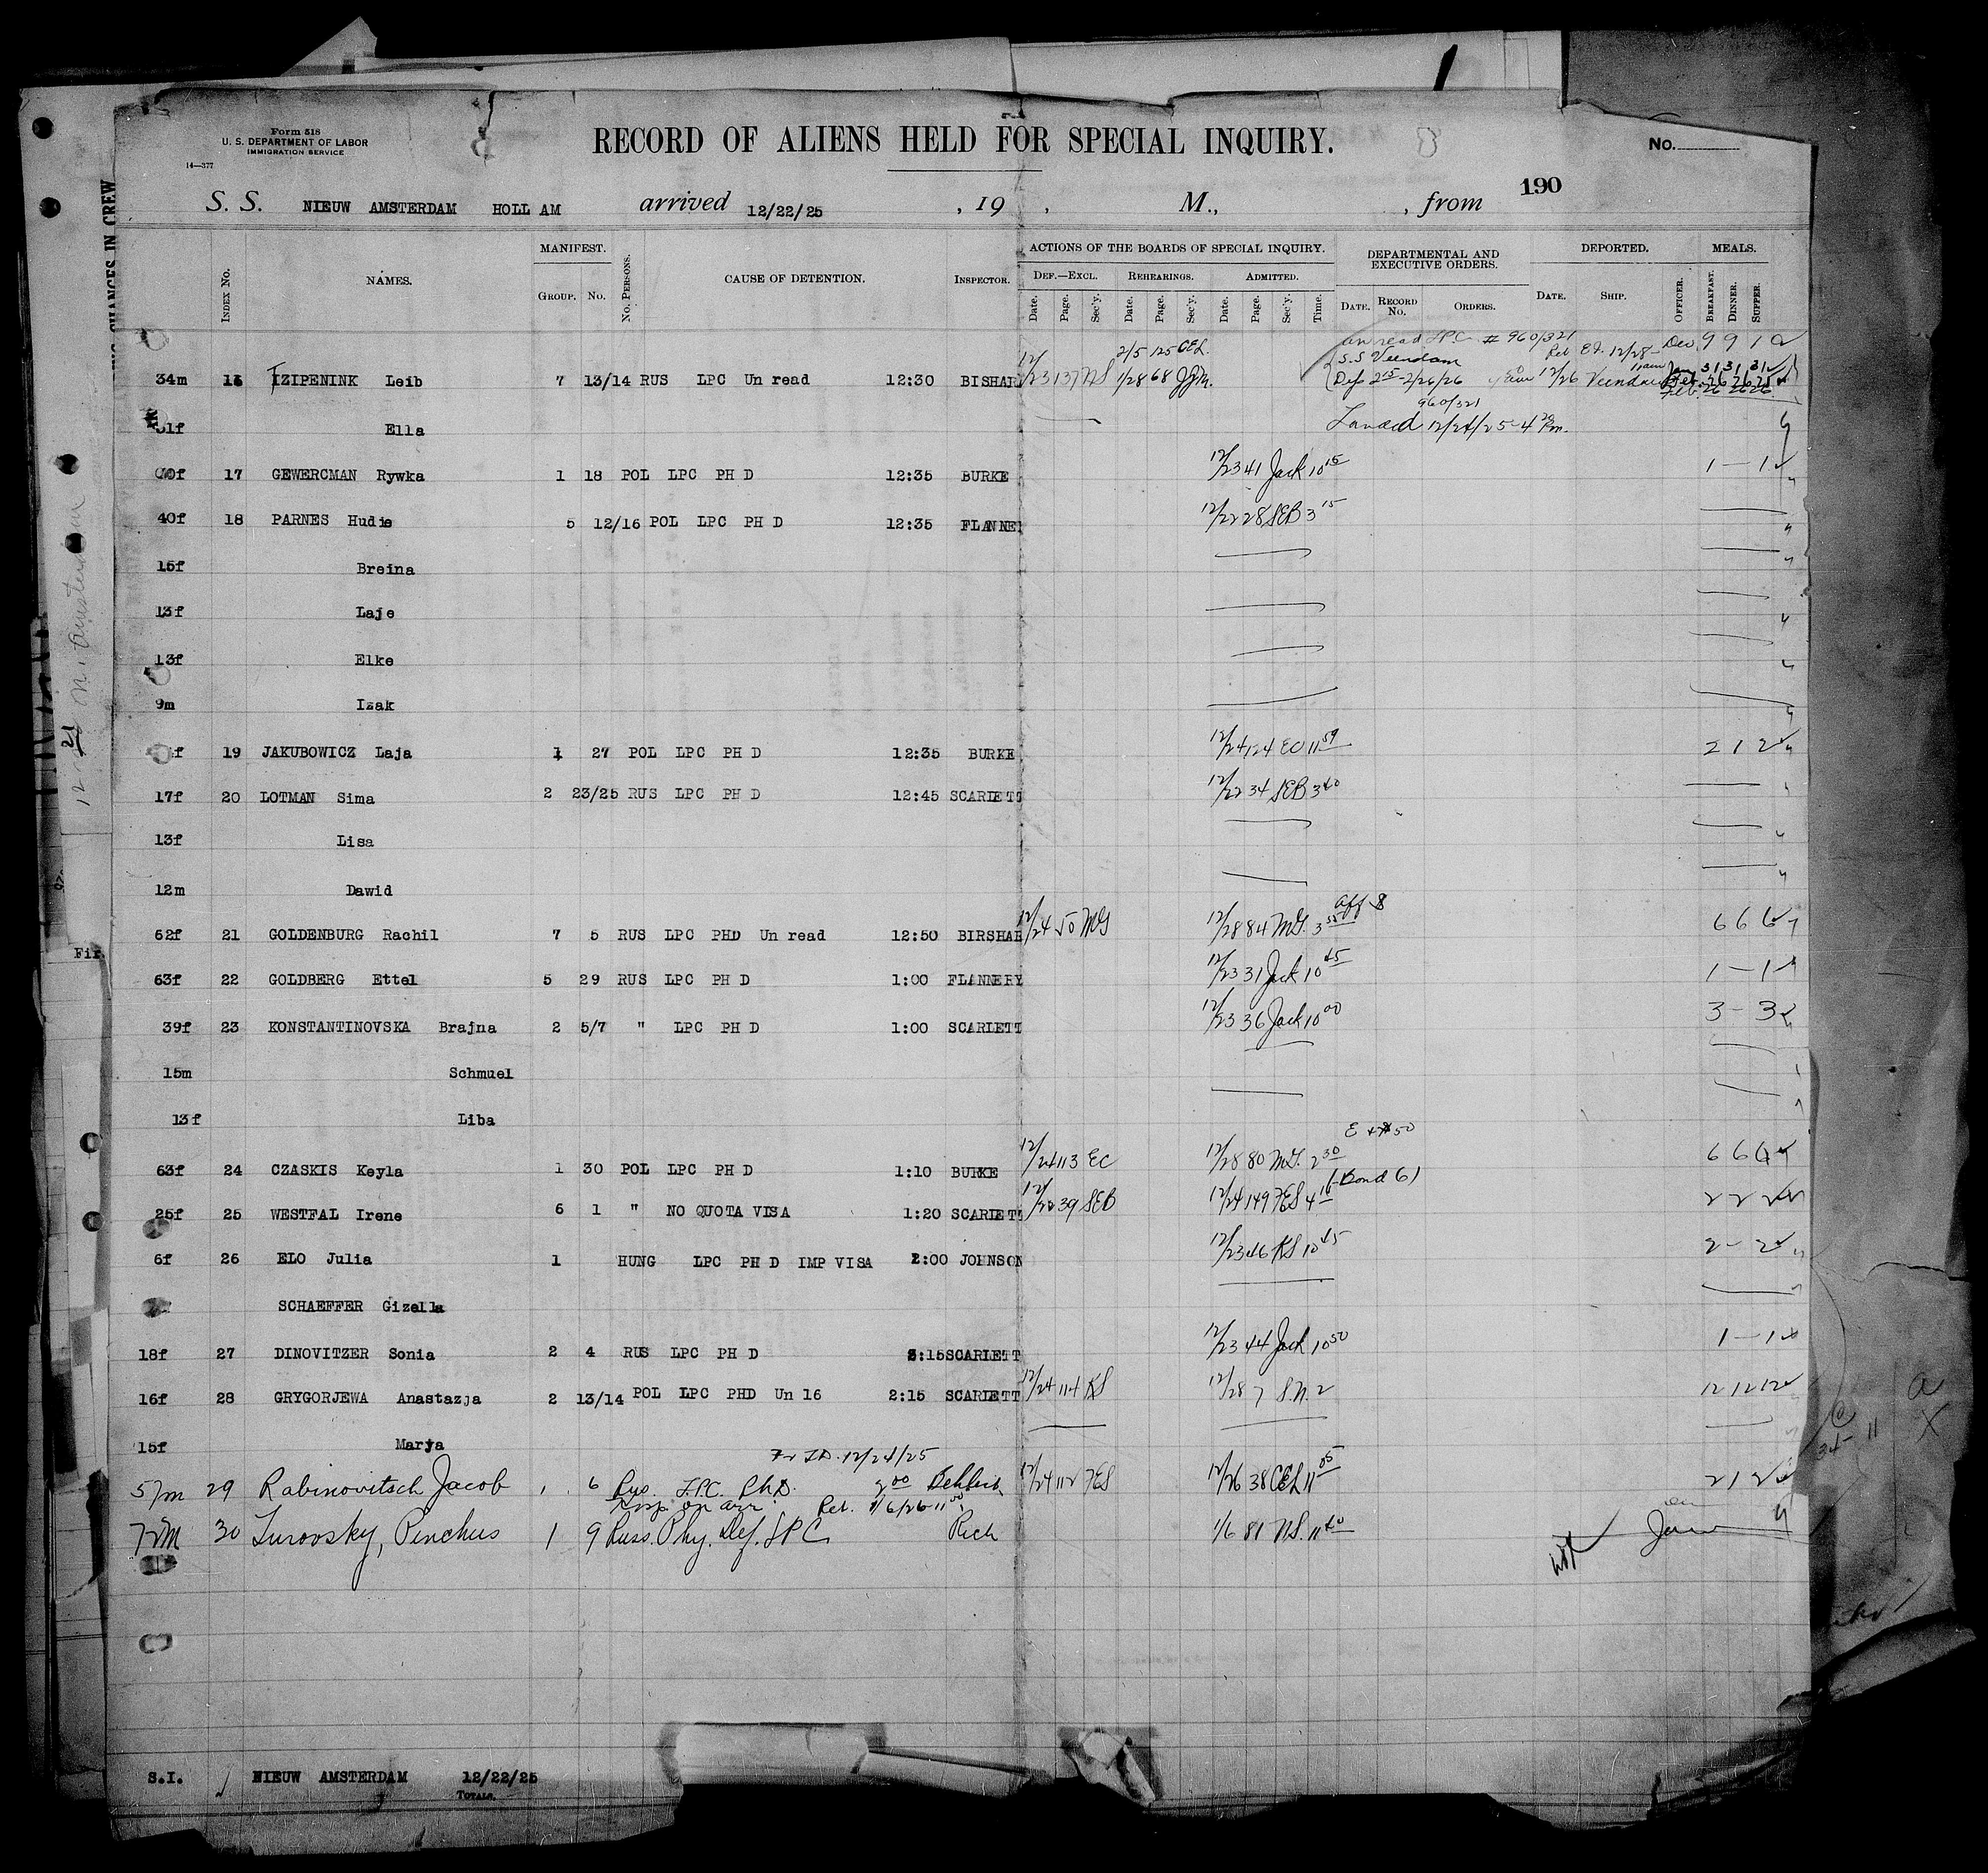 Form 518
U. S. DEPARTMENT OF LABOR
IMMIGRATION SERVICE
14—377
RECORD OF ALIENS HELD FOR SPECIAL INQUIRY.
No.
190
S. S. NIEUW AMSTERDAM HOLL AM arrived 12/22/25 , 19 , M., , from
INDEX NO. NAMES. MANIFEST. GROUP. NO. NO. PERSONS. CAUSE OF DETENTION. INSPECTOR. ACTIONS OF THE BOARDS OF SPECIAL INQUIRY. DEF.—EXCL. REHEARINGS. ADMITTED. Date. Page. Sec'y. Date. Page. Sec'y. Date. Page. Sec'y. Time. DEPARTMENTAL AND EXECUTIVE ORDERS. DATE. RECORD NO. ORDERS. DEPORTED. DATE. SHIP. OFFICER. MEALS. BREAKFAST. DINNER. SUPPER.
un read LPC # 960/321 Dec 9 9 10
2/5 125 CEL. S.S Veendam
34m TZIPENINK Leib 7 13/14 RUS LPC Un read 12:30 BISHAR 12/23 137 1/28 68 JJM. Def 2/26/26 Veendam 31 31 31
Feb. 26 26 26
960/321
Ella Landed 12/24/25-4 Pm.
40f 17 GEWERCMAN Rywka 1 18 POL LPC PH D 12:35 BURKE 12/23 41 Jack 10 15 1 — 1
40f 18 PARNES Hudie 5 12/16 POL LPC PH D 12:35 FLANNE 12/22 28 SEB 3 15
15f Breina
13f Laje
13f Elke
9m Izak
f 19 JAKUBOWICZ Laja 1 27 POL LPC PH D 12:35 BURKE 12/24 124 EC 11 59 2 1 2
17f 20 LOTMAN Sima 2 23/25 RUS LPC PH D 12:45 SCARLETT 12/22 34 SEB 3 40
13f Lisa
12m Dawid
62f 21 GOLDENBURG Rachil 7 5 RUS LPC PHD Un read 12:50 BIRSHAE 12/24 50 MG 12/28 84 MG. 3 6 6 6
63f 22 GOLDBERG Ettel 5 29 RUS LPC PH D 1:00 FLANNERY 12/23 31 Jack 10 45 1 — 1
39f 23 KONSTANTINOVSKA Brajna 2 5/7 " LPC PH D 1:00 SCARLETT 12/23 36 Jack 10 00 3 - 3
15m Schmuel
13f Liba
63f 24 CZASKIS Keyla 1 30 POL LPC PH D 1:10 BURKE 12/24 113 EC 12/28 80 MG. 2 30 6 6 6
(Bond 6)
25f 25 WESTFAL Irene 6 1 " NO QUOTA VISA 1:20 SCARLETT 39 SEB 12/24 149 FES 4 2 2 2
6f 26 ELO Julia 1 HUNG LPC PH D IMP VISA 2:00 JOHNSON 12/23 46 KS 10 45 2 - 2
SCHAEFFER Gizella
18f 27 DINOVITZER Sonia 2 4 RUS LPC PH D :15 SCARLETT 12/23 44 Jack 10 50 1 — 1
16f 28 GRYGORJEWA Anastazja 2 13/14 POL LPC PHD Un 16 2:15 SCARLETT 12/24 114 KS 12/28 7 S.N. 2 12 12 12
15f Marja
12/24/25
57m 29 Rabinovitsch Jacob 6 Rus. LPC. Ph.D. 2 00 12/24 112 FES 12/26 38 CEL 11 05 2 1 2
Hosp. on arr. Ret. 1/6/26-11
72M 30 Turovsky, Pinchus 1 9 Russ. Phy. Def. LPC Rich 1/6 81 NS. 11 40
S.I. NIEUW AMSTERDAM 12/22/25
TOTALS.